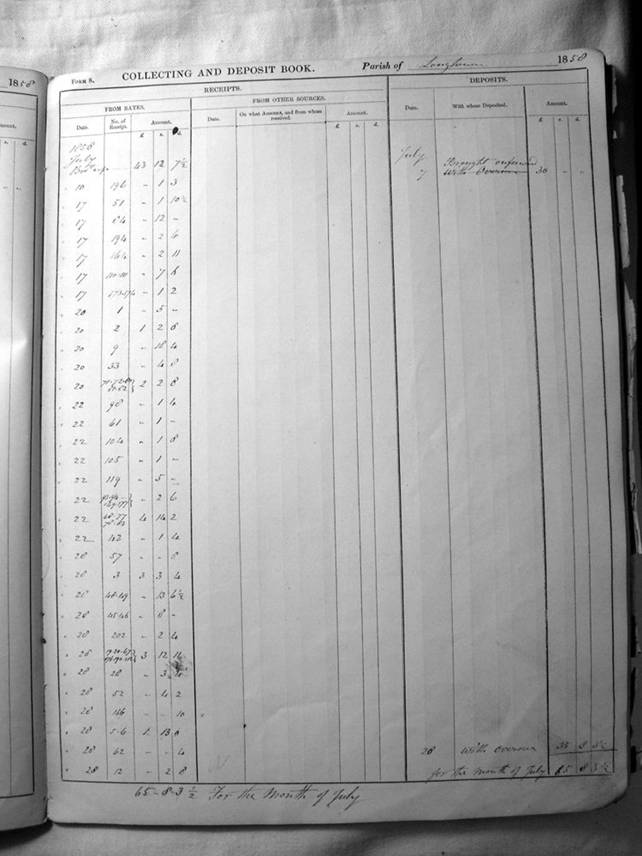 1858
FORM 8.
COLLECTING AND DEPOSIT BOOK.
Parish of Longtown
1858
RECEIPTS.
DEPOSITS.
FROM RATES.
FROM OTHER SOURCES.
Date.
No. of Receipt.
Amount.
Date.
On what Amount, and from whom received.
Amount.
Date.
With whom Deposited.
Amount.
£ s. d.
£ s. d.
£ s. d.
1858
July
43 12 7½
July
Brought
7 With Overseer 30 - -
" 10 196 - 1 3
" 17 51 - 1 10½
" 17 64 - 12 -
" 17 194 - 2 6
" 17 164 - 2 11
" 17 - 7 6
" 17 - 1 2
" 20 1 - 5 -
" 20 2 1 2 8
" 20 9 - 18 4
" 20 33 - 4 8
" 20 2 2 8
" 22 98 - 1 4
" 22 61 - 1 -
" 22 104 - 1 8
" 22 105 - 1 -
" 22 119 - 5 -
" 22 - 2 6
" 22 4 14 2
" 22 42 - 1 4
" 28 57 - - 8
" 28 3 3 3 4
" 28 48-49 - 13 6½
" 28 45-46 - 8 -
" 28 202 - 2 4
" 28 3 12
" 28 28 - 3
" 28 52 - 4 2
" 28 166 - - 10
" 28 5-6 1 13 8
" 28 62 - - 4
28 with overseer 35 8 3½
" 28 12 - 2 8
for the month of July 65 8 3½
65-8-3½ For the Month of July